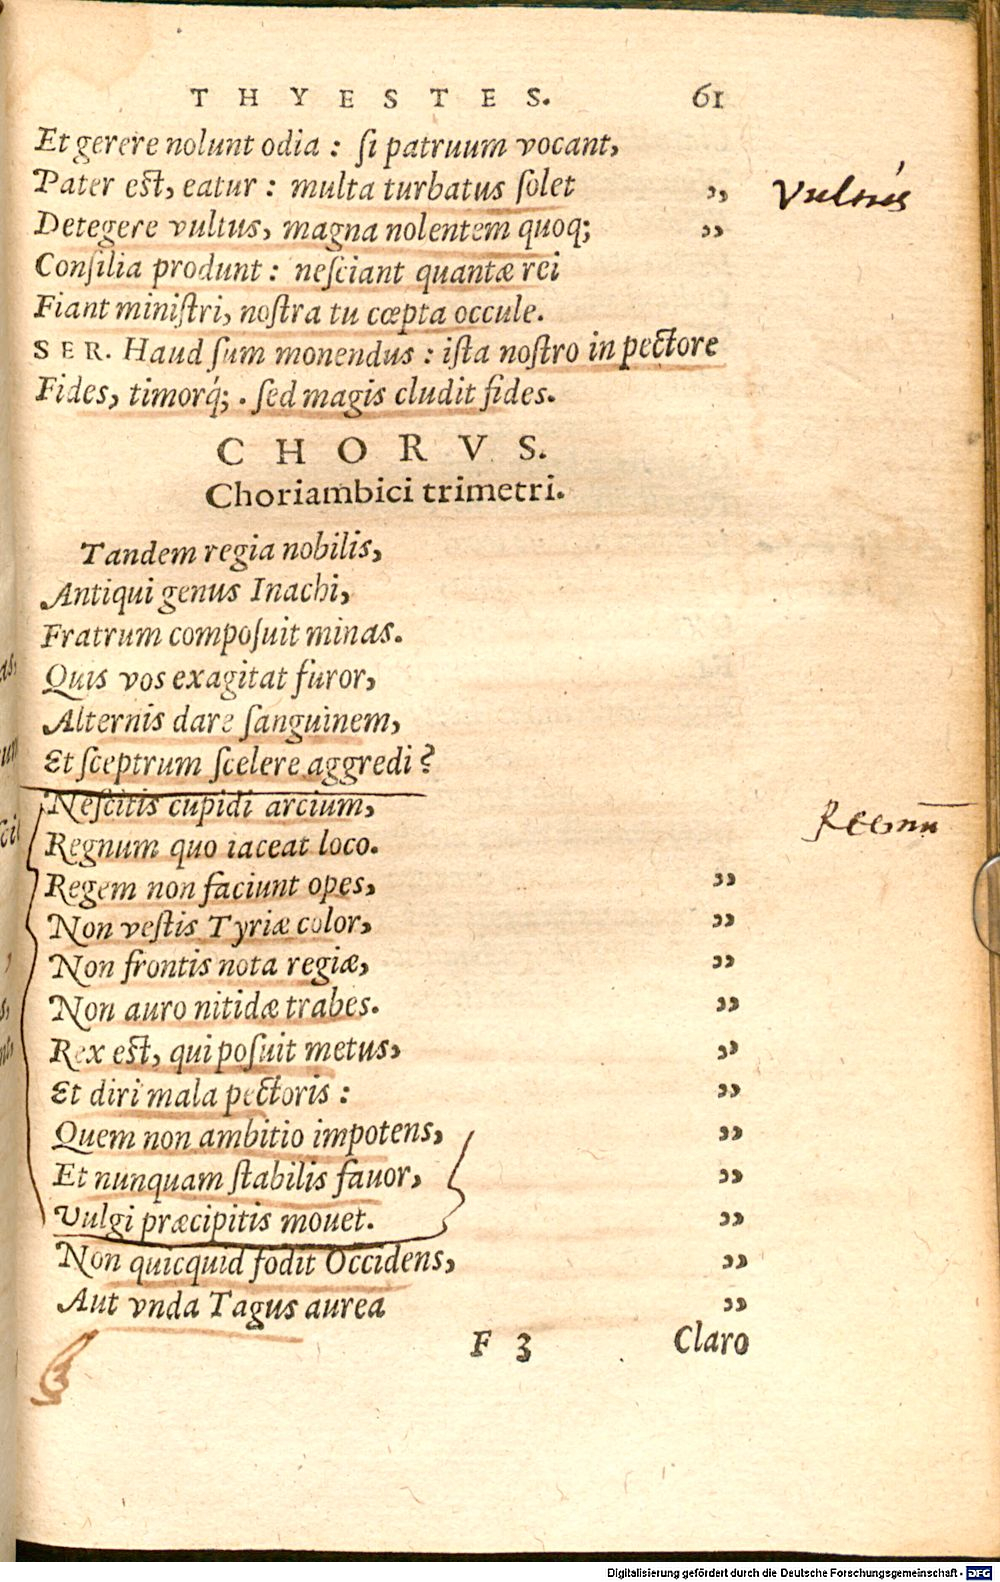 THYESTES. 61
Et gerere nolunt odia : si patruum vocant,
Pater est, eatur : multa turbatus solet ,,
Detegere vultus, magna nolentem quoq; ,,
Consilia produnt : nesciant quantæ rei
Fiant ministri, nostra tu cœpta occule.
SER. Haud sum monendus : ista nostro in pectore
Fides, timorq́; . sed magis cludit fides.
CHORVS.
Choriambici trimetri.
Tandem regia nobilis,
Antiqui genus Inachi,
Fratrum composuit minas.
Quis vos exagitat furor,
Alternis dare sanguinem,
Et sceptrum scelere aggredi?
Nescitis cupidi arcium,
Regnum quo iaceat loco.
Regem non faciunt opes, ,,
Non vestis Tyriæ color, ,,
Non frontis nota regiæ, ,,
Non auro nitidæ trabes. ,,
Rex est, qui posuit metus, ,,
Et diri mala pectoris : ,,
Quem non ambitio impotens, ,,
Et nunquam stabilis fauor, ,,
Vulgi præcipitis mouet. ,,
Non quicquid fodit Occidens, ,,
Aut vnda Tagus aurea ,,
F 3 Claro
Digitalisierung gefördert durch die Deutsche Forschungsgemeinschaft - DFG